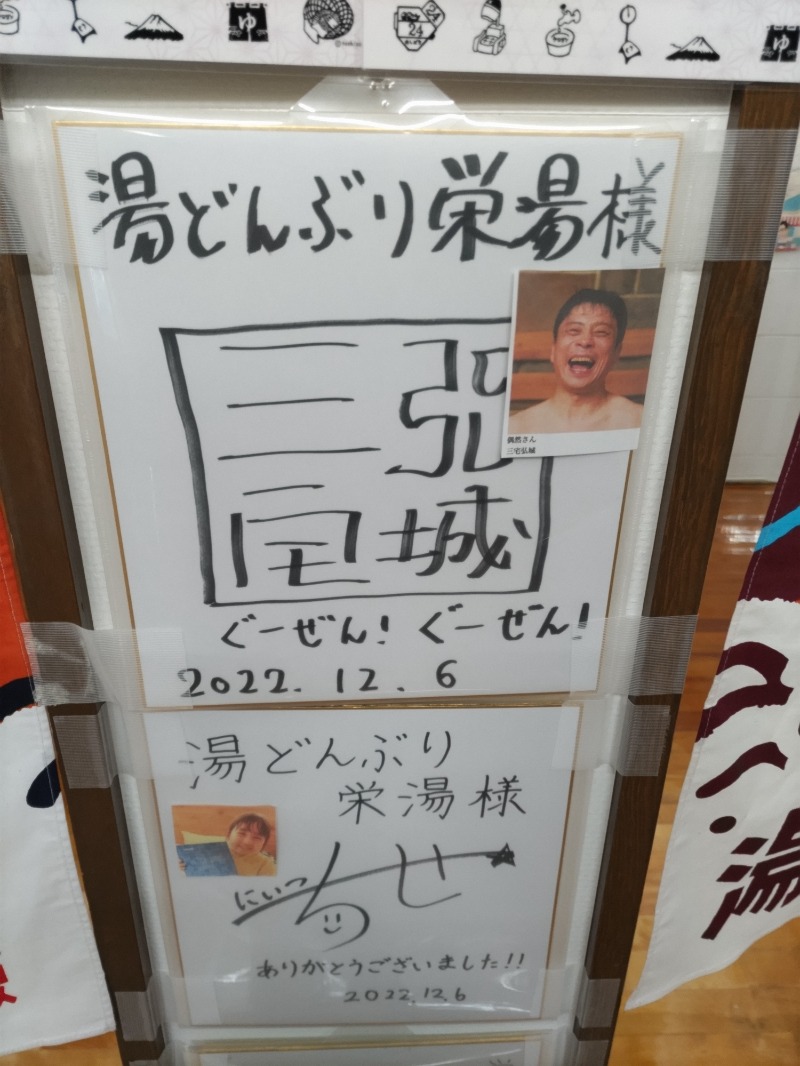 ゆ
24
ゆ
湯どんぶり栄湯様
三宅
弘城
偶然さん
三宅弘城
ぐーぜん! ぐーぜん!
2022.12.6
湯どんぶり
栄湯様
にいつ
ありがとうございました!!
2022.12.6
湯